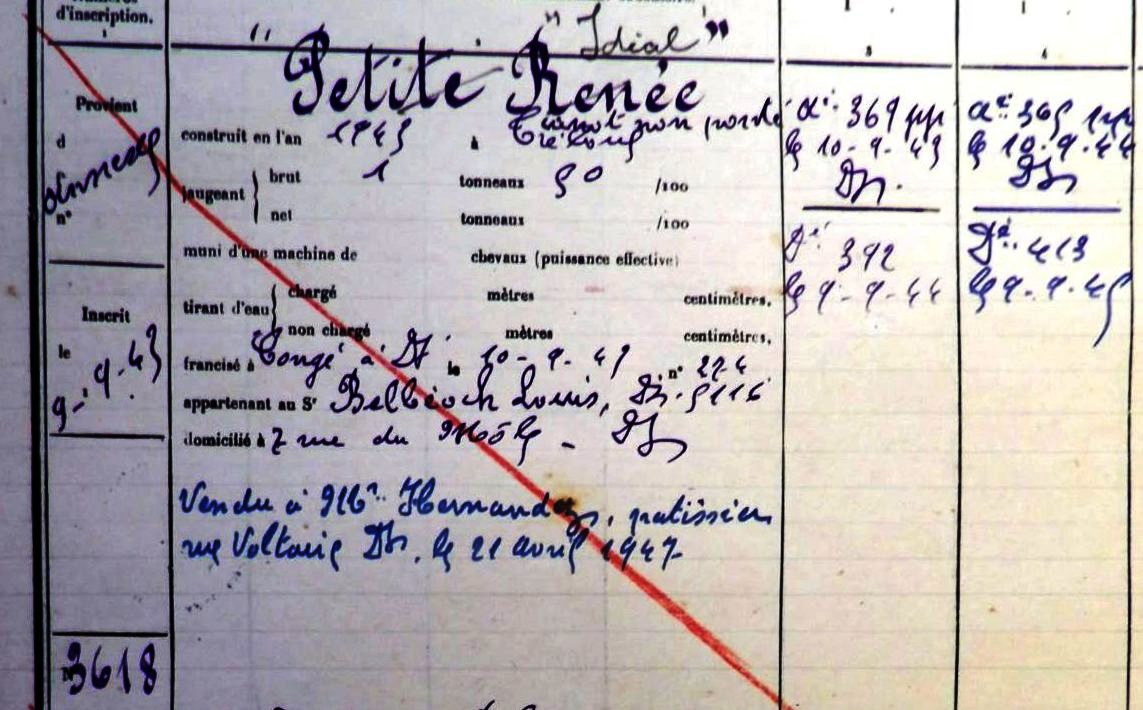 d'inscription.
1
" "Idéal"
Petite Renée
3
4
Provient
d
n°
canot non ponté
construit en l'an 1943 à Tréboul
jaugeant brut 1 tonneaux 50 /100
net tonneaux /100
muni d'une machine de chevaux (puissance effective)
tirant d'eau chargé mètres centimètres,
non chargé mètres centimètres,
francisé à Congé à Dz le 10-9-43 n° 224
appartenant au Sr Belbéoch Louis, Dz. 5116
domicilié à 7 rue du Môle - Dz
Vendu à Mr Hernandez, patissier
rue Voltaire Dz. le 21 avril 1947
Inscrit
le
9-9-43
N° 3618
369 pp
le 10-9-43
Dz.
392
le 9-9-44
365 pp
le 10-9-44
Dz
413
le 9-9-45